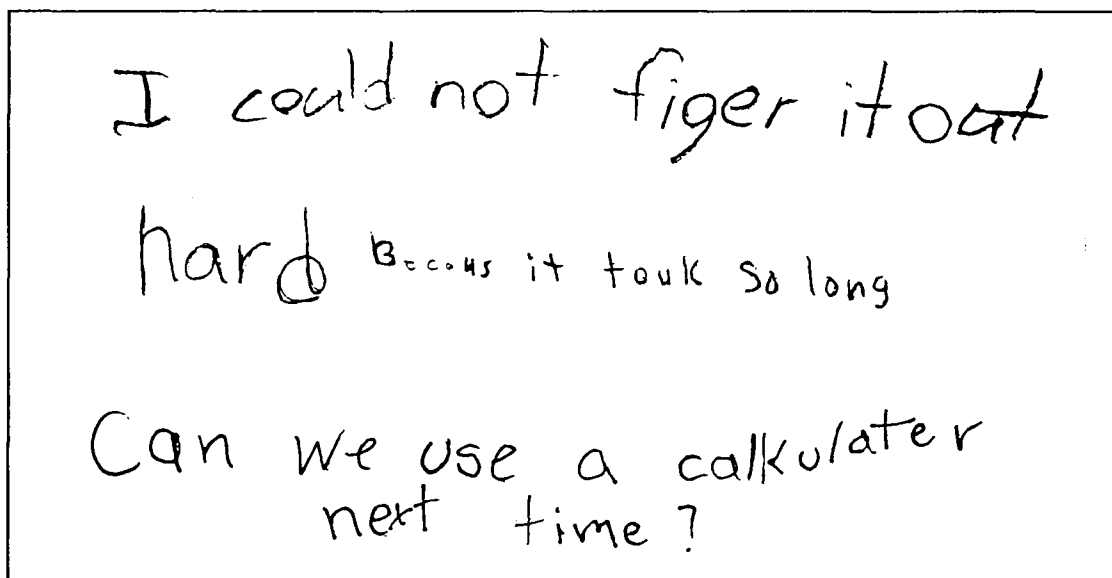 I could not figer it out
hard Becous it touk so long
Can we use a calkulater
next time?